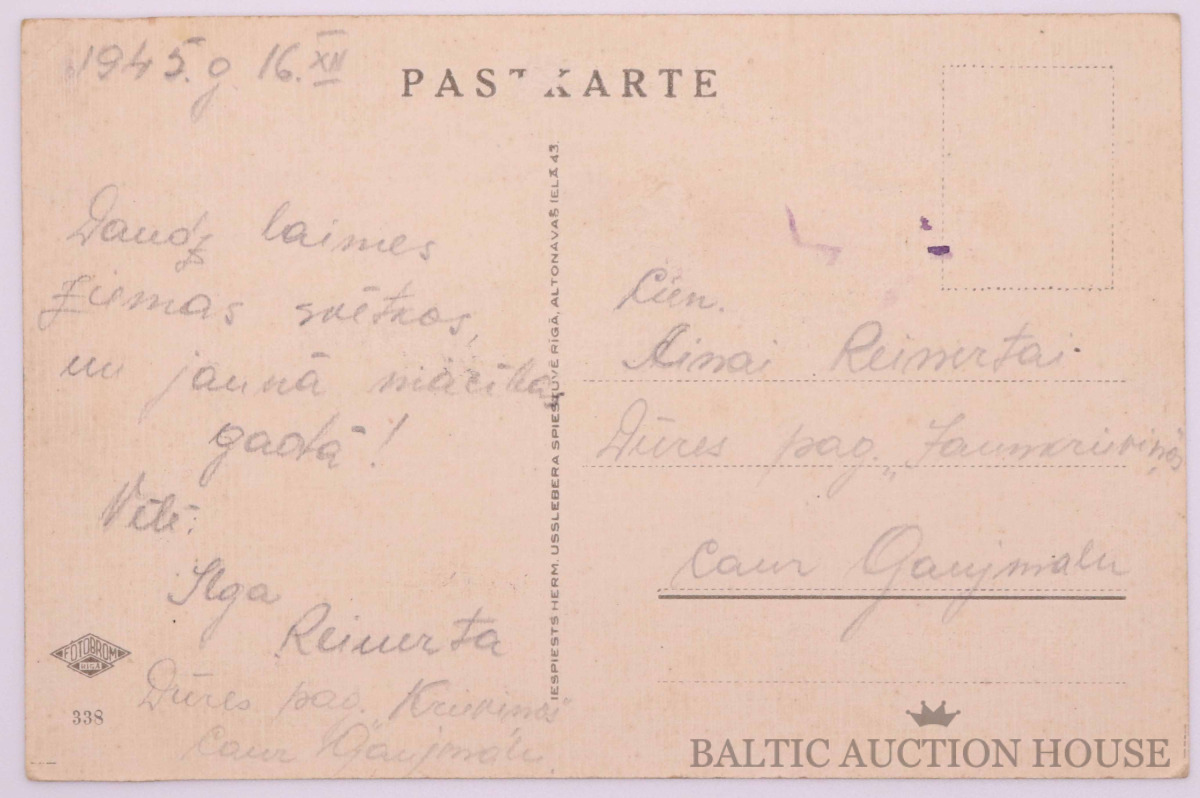 1945. g 16. XII
PASTKARTE
Daudz laimes
Ziemas svētkos,
un jaunā mācības
gadā!
Vēlē:
Ilga
Reinerta
Dūres pag. „Krievinos"
caur Gaujmalu.
FOTOBROM
RIGA
338
IESPIESTS HERM. USSLEBERA SPIESTUVĒ RĪGĀ, ALTONAVAS IELĀ 43.
Cien.
Ainai Reinertai.
Dūres pag. „Jaunkrieviņos
caur Gaujmalu
BALTIC AUCTION HOUSE